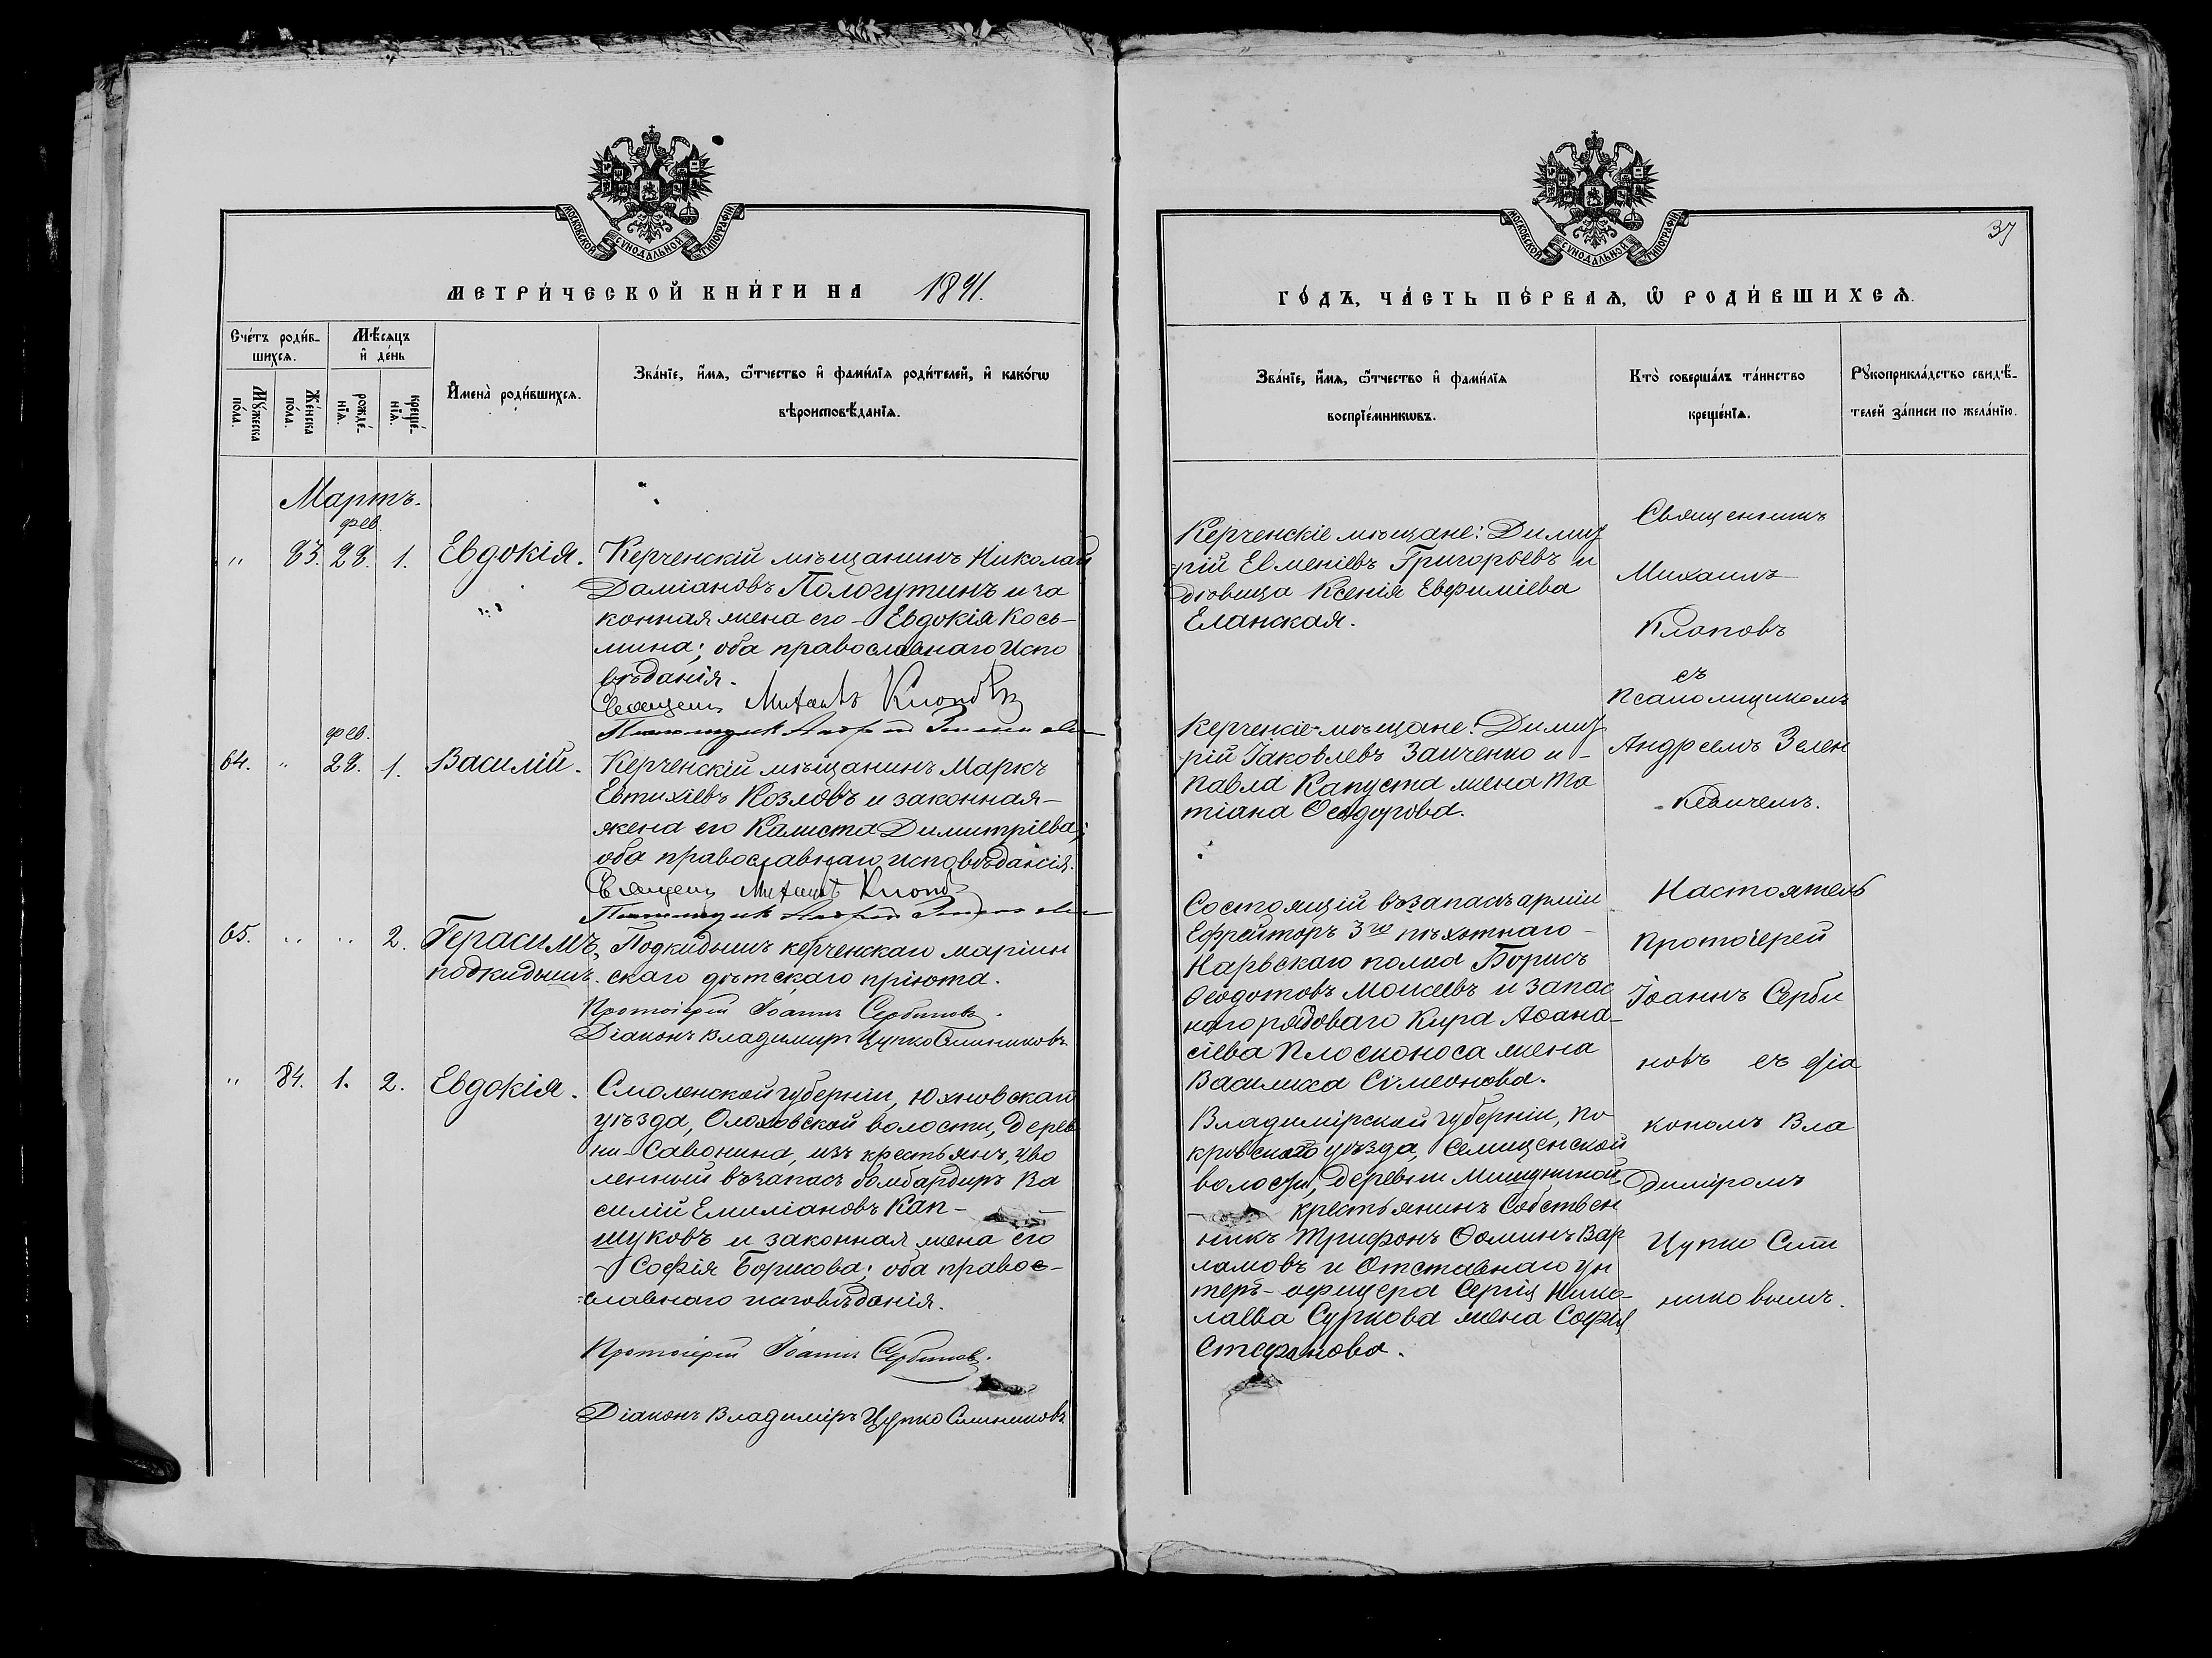 МОСКОВСКОЙ СУНОДАЛЬНОЙ ТИПОГРАФІИ
МЕТРИ́ЧЕСКОЙ КНИ́ГИ НА 1891.
Сче́тъ роди́в-
шихсѧ.
Мѣ́сѧцъ
и҆ де́нь
Мꙋ́жеска
по́ла.
Же́нска
по́ла.
рожде́-
нїѧ.
креще́-
нїѧ.
И҆мена̀ роди́вшихсѧ.
Зва́нїе, и҆́мѧ, ѻ҆́тчество и҆ фами́лїѧ роди́телей, и҆ како́гѡ
вѣроисповѣ́данїѧ.
Мартъ.
фев.
" 83. 28. 1. Евдокія. Керченскій мѣщанинъ Николай
Даміановъ Пологутинъ и за
конная жена его - Евдокія Кось-
мина; оба православнаго испо
вѣданія.
Священ. Михаилъ Клоповъ
Псаломщикъ Андрей
фев.
64. " 28. 1. Василій. Керченскій мѣщанинъ Маркъ
Евтихіевъ Козловъ и законная-
жена его Калиста Димитріева;
оба православнаго исповѣданія.
Священ. Михаилъ Клоповъ
Псаломщикъ Андрей
65. " " 2. Герасимъ, Подкидышъ керченскаго маріин
подкидышъ. скаго дѣтскаго пріюта.
Протоіерей Іоаннъ Сербиновъ.
Діаконъ Владимиръ Цупко Ситниковъ
" 84. 1. 2. Евдокія. Смоленской губерніи, Юхновскаго
уѣзда, Слоховской волости, дерев
ни-Савонина, изъ крестьянъ, уво
ленный въ запасъ бомбардиръ Ва
силій Емиліановъ Кап-
шуковъ и законная жена его
- Софія Борисова; оба правос-
славнаго исповѣданія.
Протоіерей Іоаннъ Сербиновъ.
Діаконъ Владиміръ Цупко Ситниковъ
МОСКОВСКОЙ СУНОДАЛЬНОЙ ТИПОГРАФІИ
37
ГО́ДЪ, ЧА́СТЬ ПЕ́РВАѦ, Ѡ҆ РОДИ́ВШИХСѦ.
Зва́нїе, и҆́мѧ, ѻ҆́тчество и҆ фами́лїѧ
воспрїе́мникѡвъ.
Кто̀ соверша́лъ та́инство
креще́нїѧ.
Рꙋкоприкла́дство свидѣ́-
телей за́писи по жела́нїю.
Керченскіе мѣщане: Димит
рій Евменіевъ Григорьевъ и
дѣвица Ксенія Евфиміева
Еланская.
Священникъ
Михаилъ
Клоповъ
съ
Псаломщикомъ
Андреемъ Зелен
кевичемъ.
Керченскіе-мѣщане: Димит
рій Іаковлевъ Заиченко и -
Павла Капуста жена Та
тіана Ѳеодорова.
Состоящій въ запасѣ арміи
Ефрейторъ 3го пѣхотнаго-
Нарвскаго полка Борисъ
Ѳеодотовъ Моисеевъ и запас
наго рядоваго Кира Аѳана-
сіева Плосконоса жена
Василиса Сімеонова.
Настоятель
Протоіерей
Іоаннъ Серби
новъ съ діа
кономъ Вла
диміромъ
Цупко Сит
никовымъ.
Владимірской губерніи, По
кровскаго уѣзда, Селищенской
волости, деревни Мишуниной,
крестьянинъ Собствен
никъ Трифонъ Ѳоминъ Вар
ламовъ и Отставнаго ун
теръ-офицера Сергія Нико-
лаева Суркова жена Софія
Стефанова.